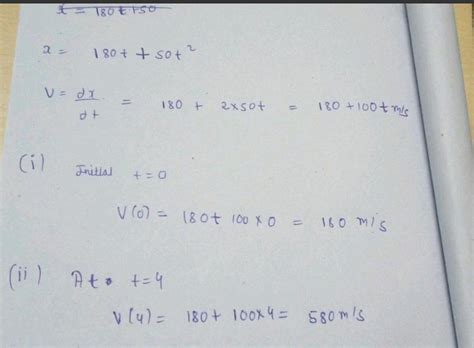 x = 180t+50
x = 180t + 50t²
V = dx/dt = 180 + 2x50t = 180+100t m/s
(i) Initial t=0
V(0) = 180+ 100x0 = 180 m/s
(ii) At t=4
V(4) = 180+ 100x4= 580m/s